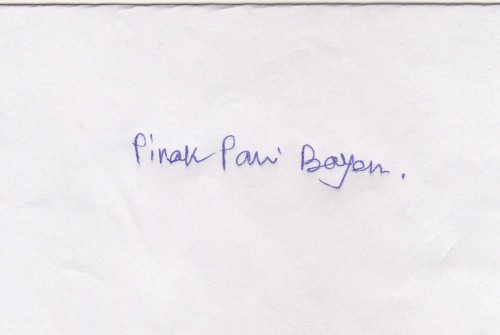 Pinak Pani Bayen.